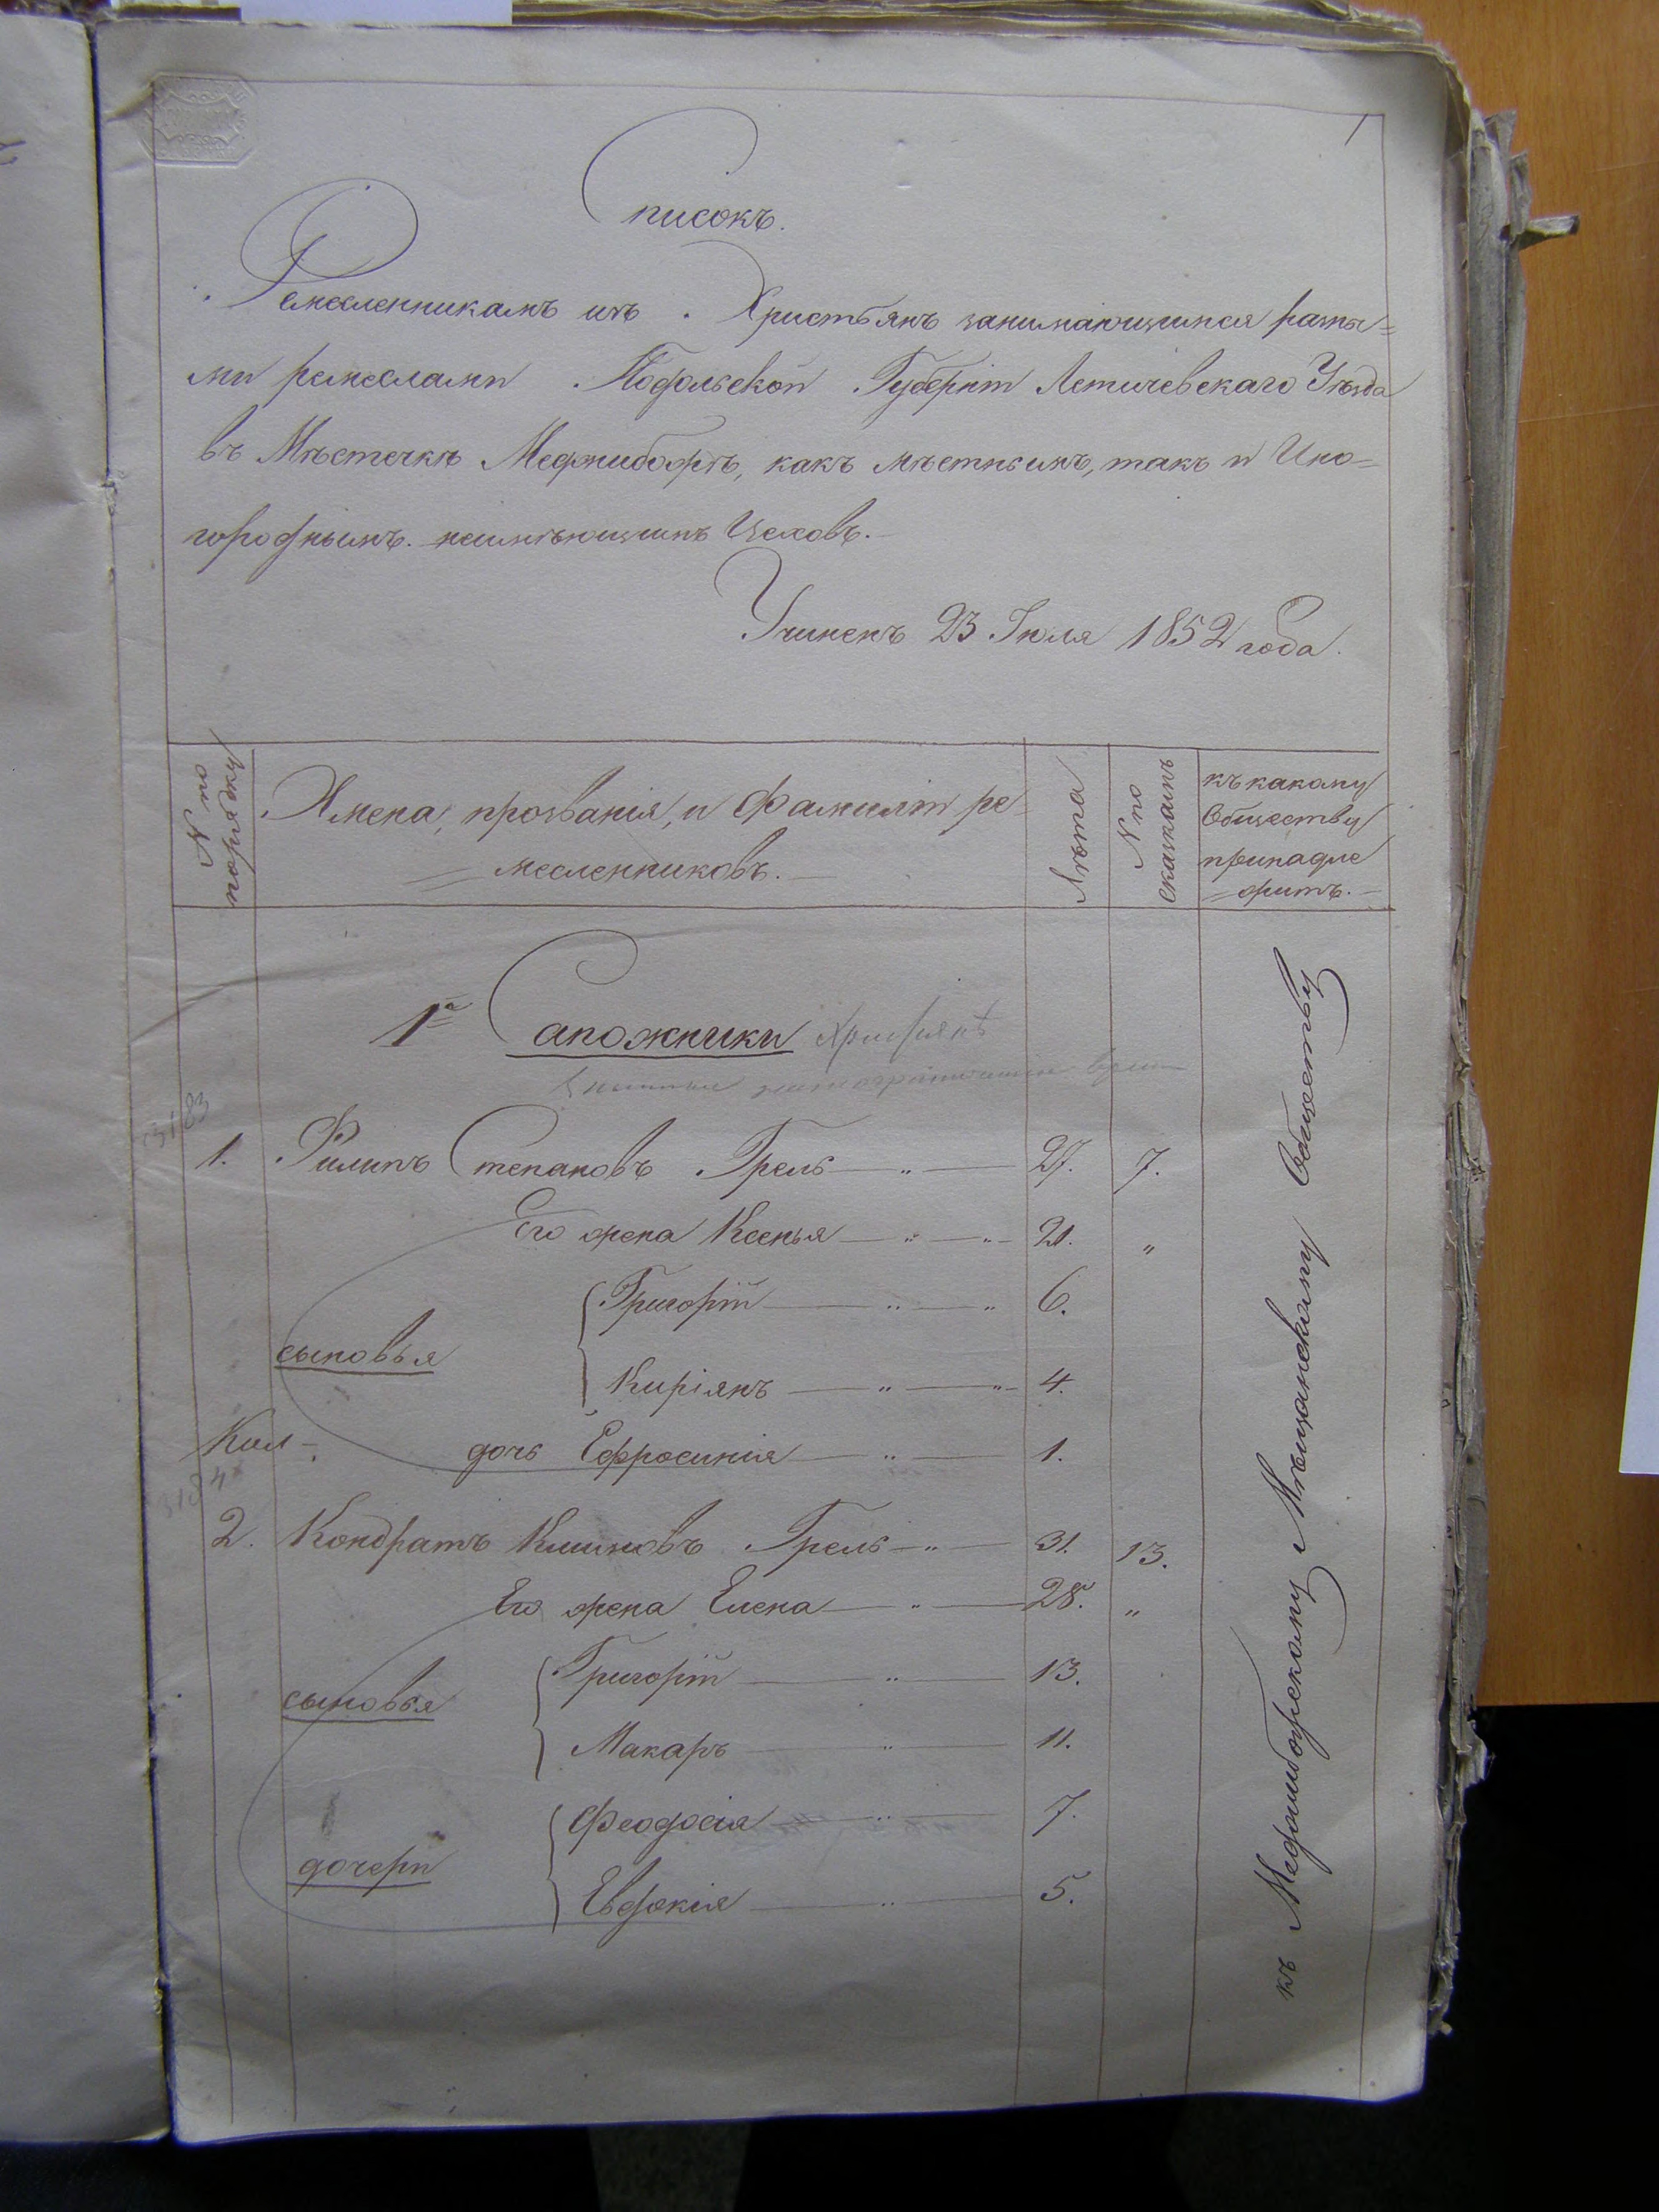 1
Списокъ.
Ремесленникамъ изъ Христьянъ занимающимся разны=
ми ремеслами Подольской Губерніи Летичевскаго Уѣзда
въ Мѣстечкѣ Меджибожѣ, какъ мѣстнымъ, такъ и Ино=
городнымъ. неимѣющимъ Цеховъ.
Учиненъ 23 Іюля 1852 года.
N по порядку
Имена, прозванія, и фамиліи ре=
=месленниковъ.
Лѣта
N по сказкамъ
къ какому
Обществу
принадле
=житъ.
1я Сапожники
3183
1. Филипъ Степановъ Грель 27. 7.
Его жена Ксенья 21. "
сыновья
Григорій 6.
Киріянъ 4.
дочь Ефросинія 1.
3184
2. Кондратъ Климовъ Грель 31. 13.
Его жена Елена 28. "
сыновья
Григорій 13.
Макаръ 11.
дочери
Феодосія 7.
Евдокія 5.
къ Меджибожскому Мѣщанскому Обществу